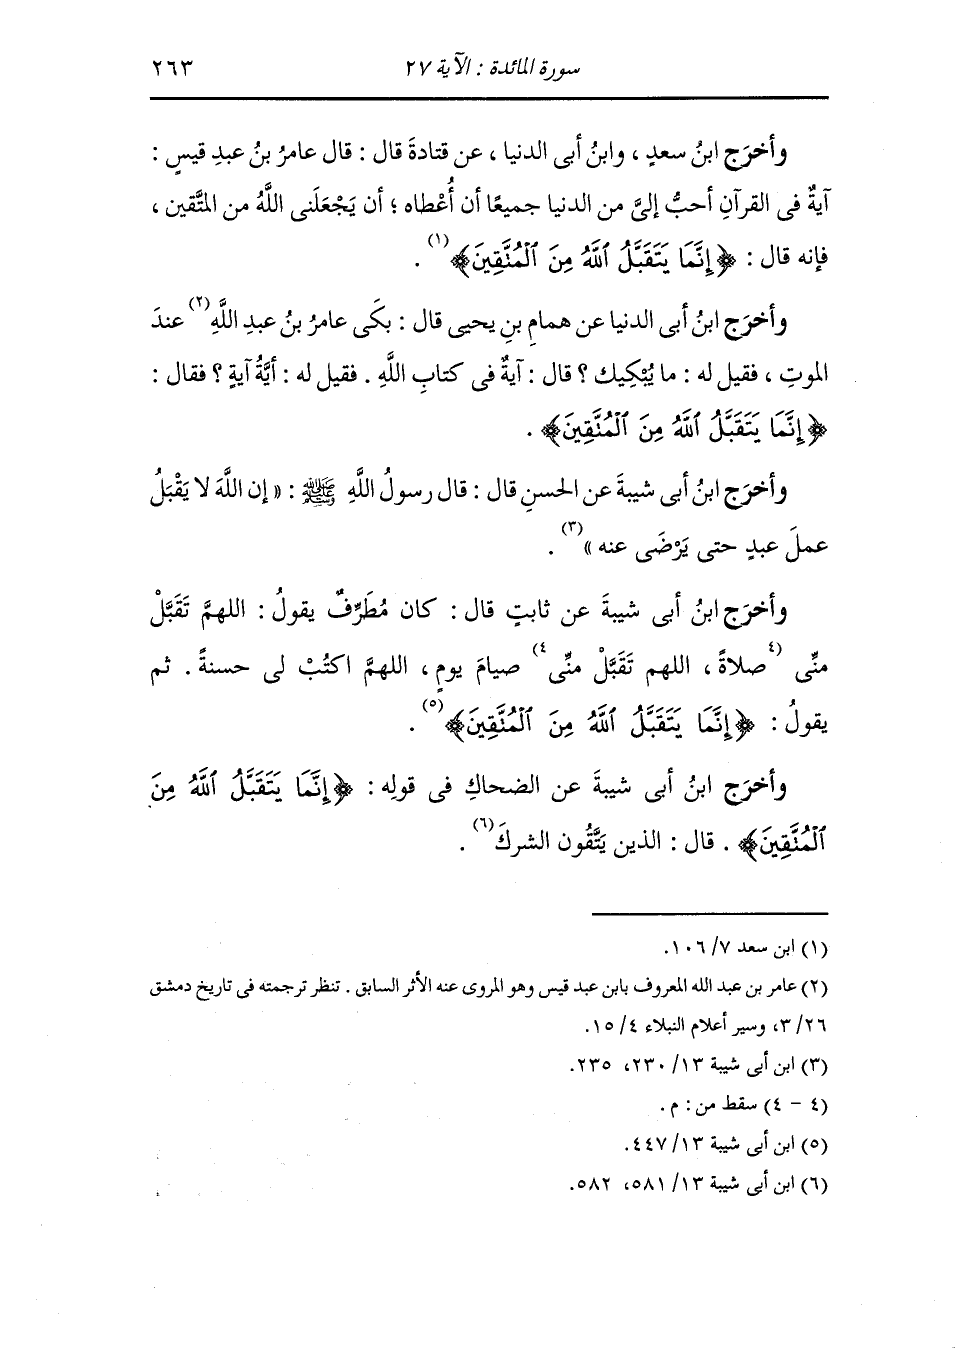 سورة المائدة : الآية ٢٧
٢٦٣
وأخرَج ابنُ سعدٍ ، وابنُ أبى الدنيا ، عن قتادةَ قال : قال عامرُ بنُ عبدِ قيسٍ :
آيةٌ فى القرآنِ أحبُّ إلىَّ من الدنيا جميعًا أن أُعْطاه ؛ أن يَجْعَلَنى اللَّهُ من المتَّقين ،
فإنه قال : ﴿إِنَّمَا يَتَقَبَّلُ ٱللَّهُ مِنَ ٱلْمُتَّقِينَ﴾(١) .
وأخرَج ابنُ أبى الدنيا عن همامِ بنِ يحيى قال : بكَى عامرُ بنُ عبدِ اللَّهِ(٢) عندَ
الموتِ ، فقيل له : ما يُبْكِيك ؟ قال : آيةٌ فى كتابِ اللَّهِ . فقيل له : أيَّةُ آيةٍ ؟ فقال :
﴿إِنَّمَا يَتَقَبَّلُ ٱللَّهُ مِنَ ٱلْمُتَّقِينَ﴾ .
وأخرَج ابنُ أبى شيبةَ عن الحسنِ قال : قال رسولُ اللَّهِ ﷺ : « إن اللَّهَ لا يَقْبَلُ
عملَ عبدٍ حتى يَرْضَى عنه »(٣) .
وأخرَج ابنُ أبى شيبةَ عن ثابتٍ قال : كان مُطَرِّفٌ يقولُ : اللهمَّ تَقَبَّلْ
منِّى (٤صلاةً ، اللهم تَقَبَّلْ منِّى٤) صيامَ يومٍ ، اللهمَّ اكتُبْ لى حسنةً . ثم
يقولُ : ﴿إِنَّمَا يَتَقَبَّلُ ٱللَّهُ مِنَ ٱلْمُتَّقِينَ﴾(٥) .
وأخرَج ابنُ أبى شيبةَ عن الضحاكِ فى قولِه : ﴿إِنَّمَا يَتَقَبَّلُ ٱللَّهُ مِنَ
ٱلْمُتَّقِينَ﴾ . قال : الذين يَتَّقُون الشركَ(٦) .
(١) ابن سعد ٧/ ١٠٦.
(٢) عامر بن عبد الله المعروف بابن عبد قيس وهو المروى عنه الأثر السابق . تنظر ترجمته فى تاريخ دمشق
٢٦/ ٣، وسير أعلام النبلاء ٤/ ١٥.
(٣) ابن أبى شيبة ١٣/ ٢٣٠، ٢٣٥.
(٤ - ٤) سقط من : م .
(٥) ابن أبى شيبة ١٣/ ٤٤٧.
(٦) ابن أبى شيبة ١٣/ ٥٨١، ٥٨٢.